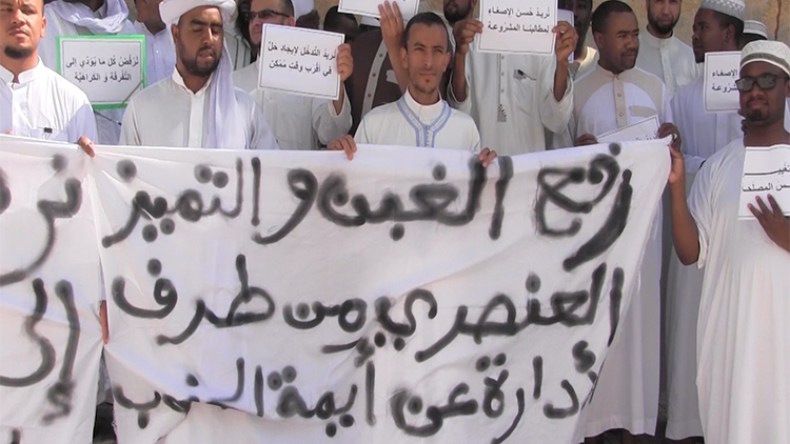 نرفض كل ما يؤدي إلى
التفرقة و الكراهية
نريد التدخل لإيجاد حل
في أقرب وقت ممكن
نريد حسن الإصغاء
لمطالبنا المشروعة
الإصغاء
المشروعة
رفع الغبن و التمييز
العنصري من طرف
أدارة عن أيمة الجنوب
إلى